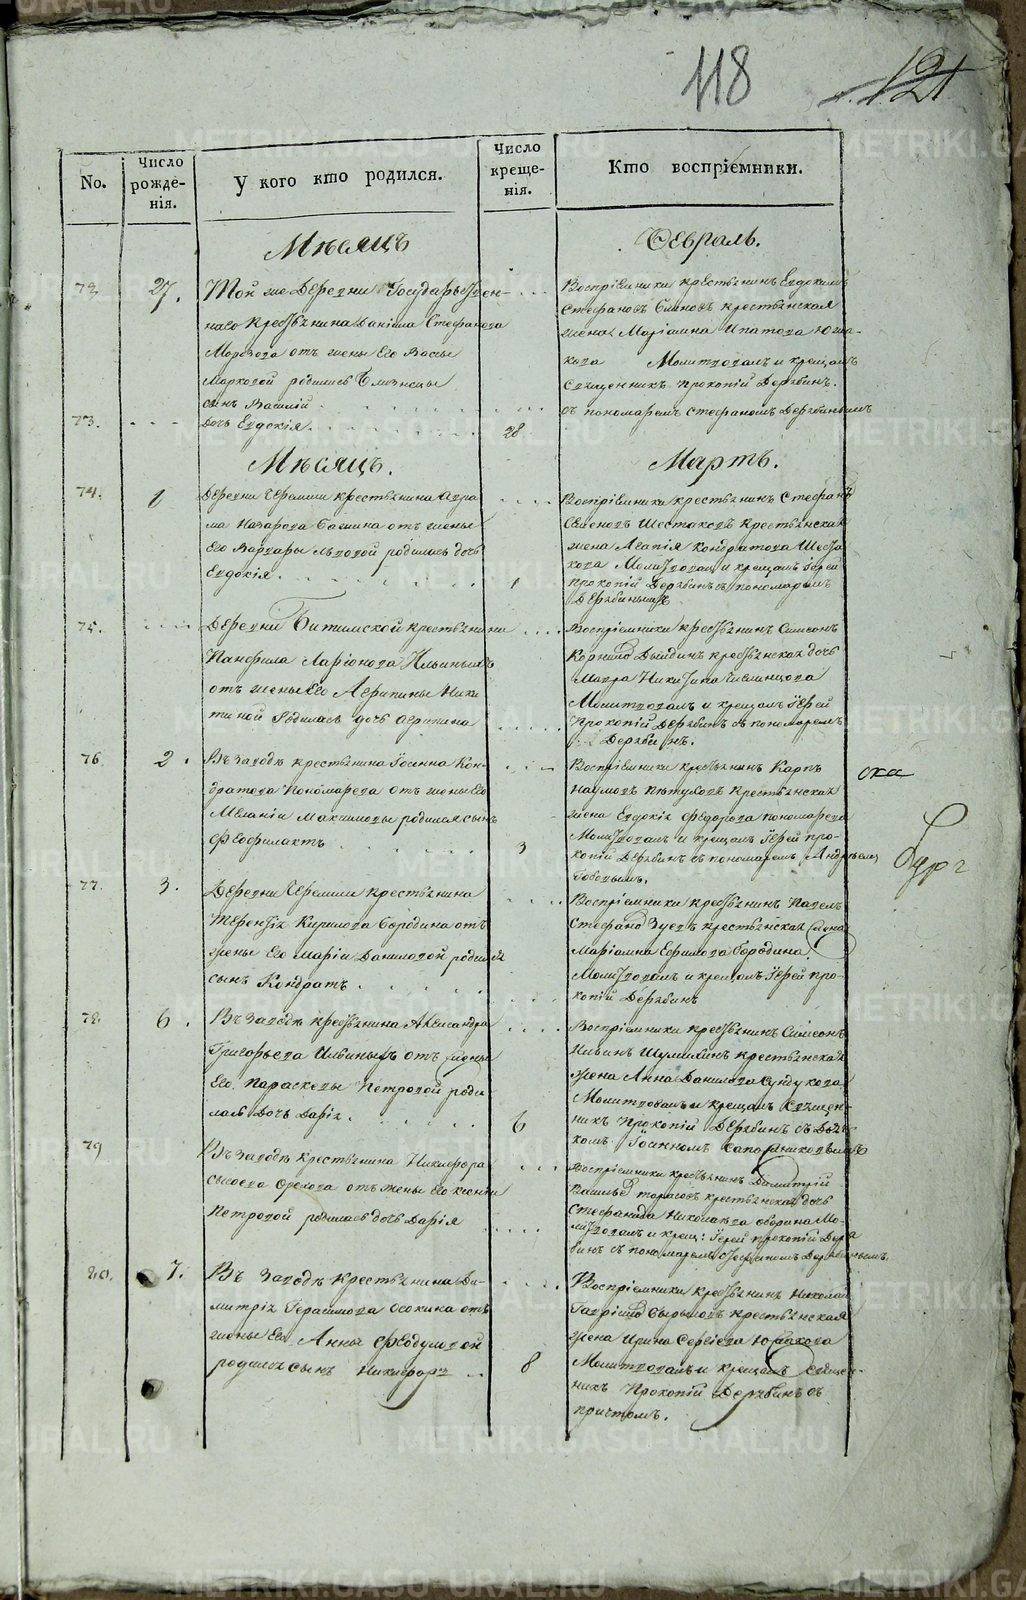 118
121
No.
Число рожде- нія.
У кого кто родился.
Число креще- нія.
Кто воспріемники.
Мѣсяцъ
Февраль.
72. 27.
Той же Деревни Государствен-
наго Крестьянина Даніила Стефанова
Морозова отъ жены Его Вассы
Марковой родились близнецы
сынъ Василій
Воспріемники крестьянинъ Евдокимъ
Стефановъ крестьянская
жена Маріамна Ипатова Юша-
кова Молитвовалъ и крещалъ
Священникъ Прокопій Дерябинъ.
съ пономаремъ Стефаномъ Дерябинымъ
73.
дочь Евдокія
28
Мѣсяцъ.
Мартъ.
74. 1
Деревни Черемши крестьянина Авра
ма Назарова отъ жены
Его Варвары Львовой родилась дочь
Евдокія
1
Воспріемники крестьянинъ Стефанъ
Семеновъ Шестаковъ крестьянская
жена Агапія Кондратова Шеста
кова Молитвовал и крещалъ Іерей
Прокопій Дерябинъ съ пономаремъ
Дерябинымъ
75.
Деревни Битимской крестьянина
Панфила Ларіонова Ильиныхъ
отъ жены Его Агрипины Ники
тиной Родилась дочь Агрипина
Воспріемники крестьянинъ Симеонъ
Корнилов крестьянская дочь
Мавра Никитина
Молитвовалъ и крещалъ Іерей
Прокопій Дерябинъ съ пономаремъ
Дерябинъ.
76. 2.
Въ заводѣ крестьянина Іоанна Кон-
дратова Пономарева отъ жены Его
Меланіи Максимовы родился сынъ
Феофилактъ
3
Воспріемники крестьянинъ Карпъ
Наумовъ Пѣтуховъ крестьянская
жена Евдокія Федорова Пономарева
Молитвовалъ и крещалъ Іерей Про-
копій Дерябинъ съ пономаремъ Андреемъ
ска
бург
77. 3.
Деревни Черемши крестьянина
Терентія Кирилова Бородина отъ
жены Его Маріи Даниловой родился
сынъ Кондратъ
Воспріемники крестьянинъ Павелъ
Стефанов Зуевъ крестьянская жена
Маріамна Ефимова Бородина.
Молитвовалъ и крещалъ Іерей Про-
копій Дерябинъ
78. 6.
Въ заводѣ крестьянина Александра
Григорьева Ильиныхъ отъ жены
Его Параскевы Петровой роди
лась Дочь Дарія
6
Воспріемники крестьянинъ Симеонъ
Шумилинъ крестьянская
жена Анна Данилова Сундукова
Молитвовалъ и крещалъ Священ-
никъ Прокопій Дерябинъ съ Дьяч
комъ Іоанномъ Сапожниковымъ
79
Въ заводѣ крестьянина Никифора
Сысоева Орехова отъ жены Его Ксеніи
Петровой родилась дочь Дарія
Воспріемники крестьянинъ Димитрій
Тарасовъ крестьянская дочь
Стефанида Николаева Мо-
литвовалъ и крещ: Іерей Прокопій Деря
бинъ съ пономаремъ Стефаномъ Дерябинымъ
80. 7.
Въ Заводѣ Крестьянина Ди-
митрія Герасимова Осокина отъ
жены Его Анны Феодуловой
родился сынъ Никифоръ
8
Воспріемники крестьянинъ Николай
Гаврилов крестьянская
жена Ирина Сергіева Юшкова
Молитвовалъ и крещалъ Священ-
никъ Прокопій Дерябинъ съ
причтомъ.